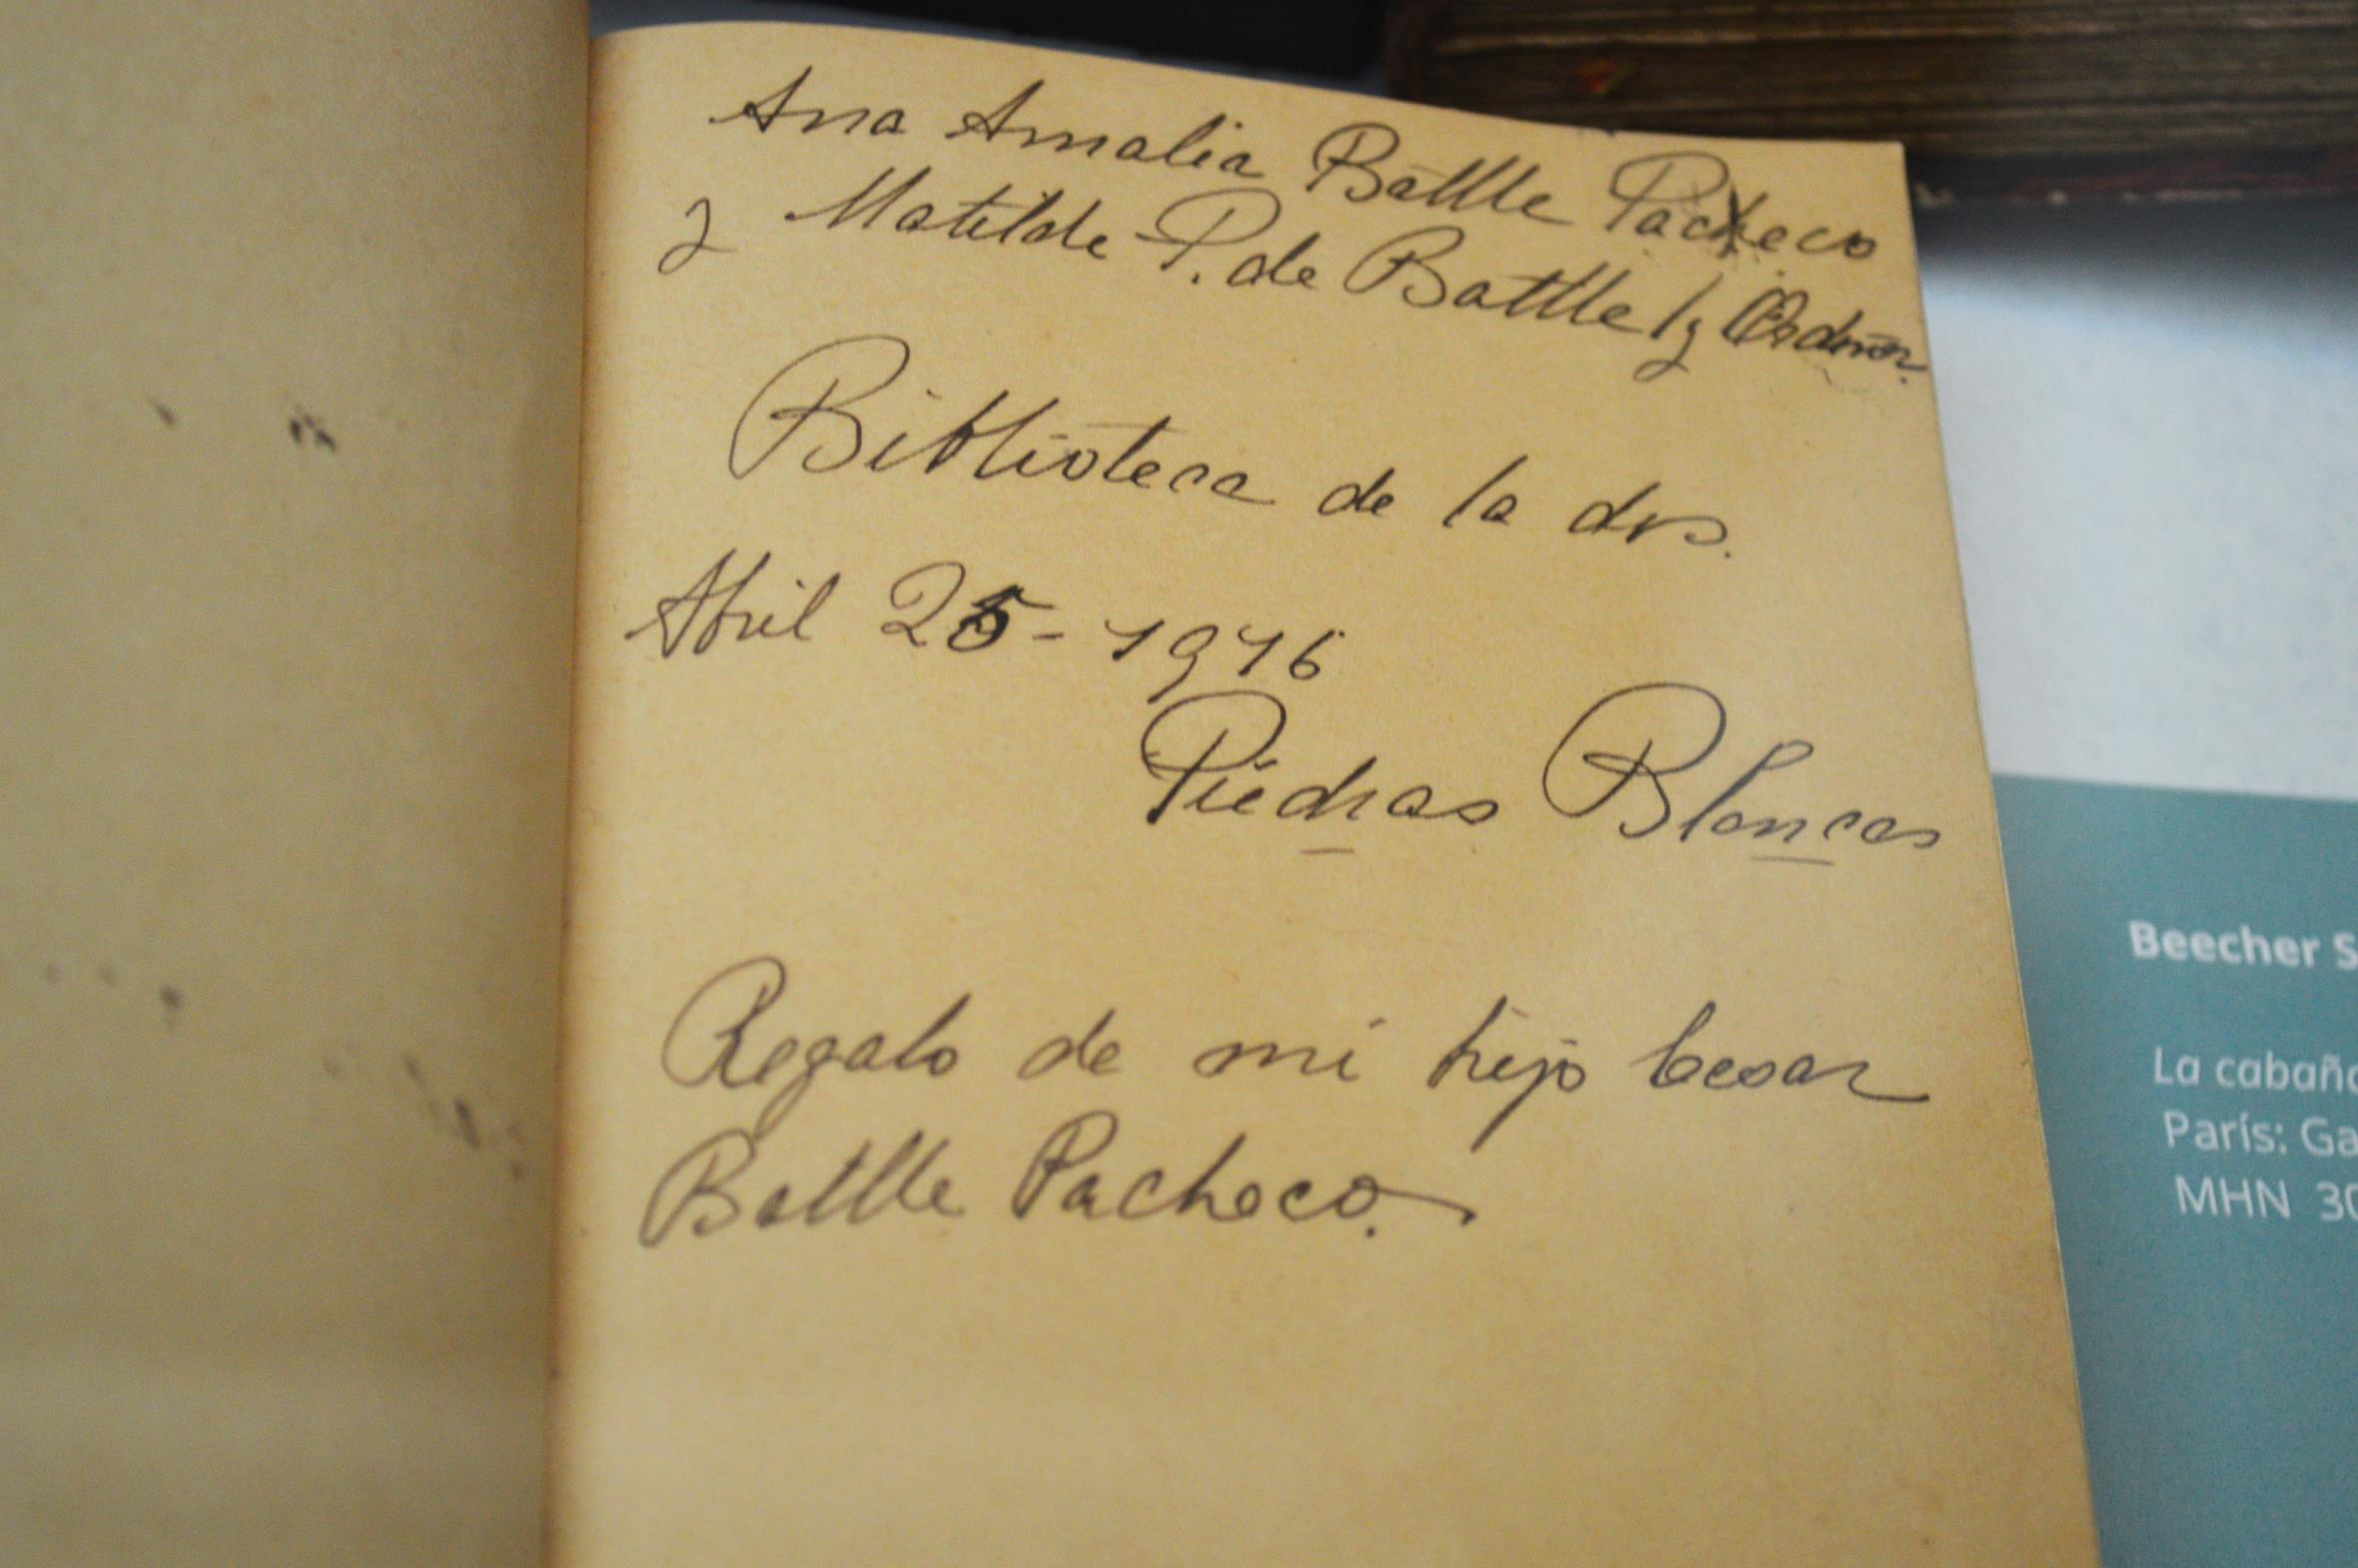 Ana Amalia Batlle Pacheco
y Matilde P. de Batlle y Ordóñez.
Biblioteca de la dos.
Abril 25-1916
Piedras Blancas
Regalo de mi hijo Cesar
Batlle Pacheco.
Beecher S
La cabaña
París: Ga
MHN 30